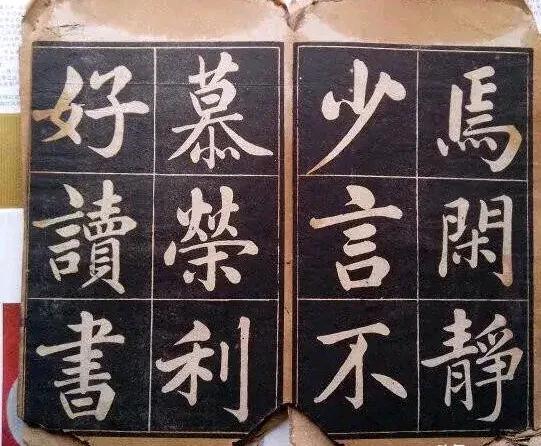 焉閑靜
少言不
慕榮利
好讀書